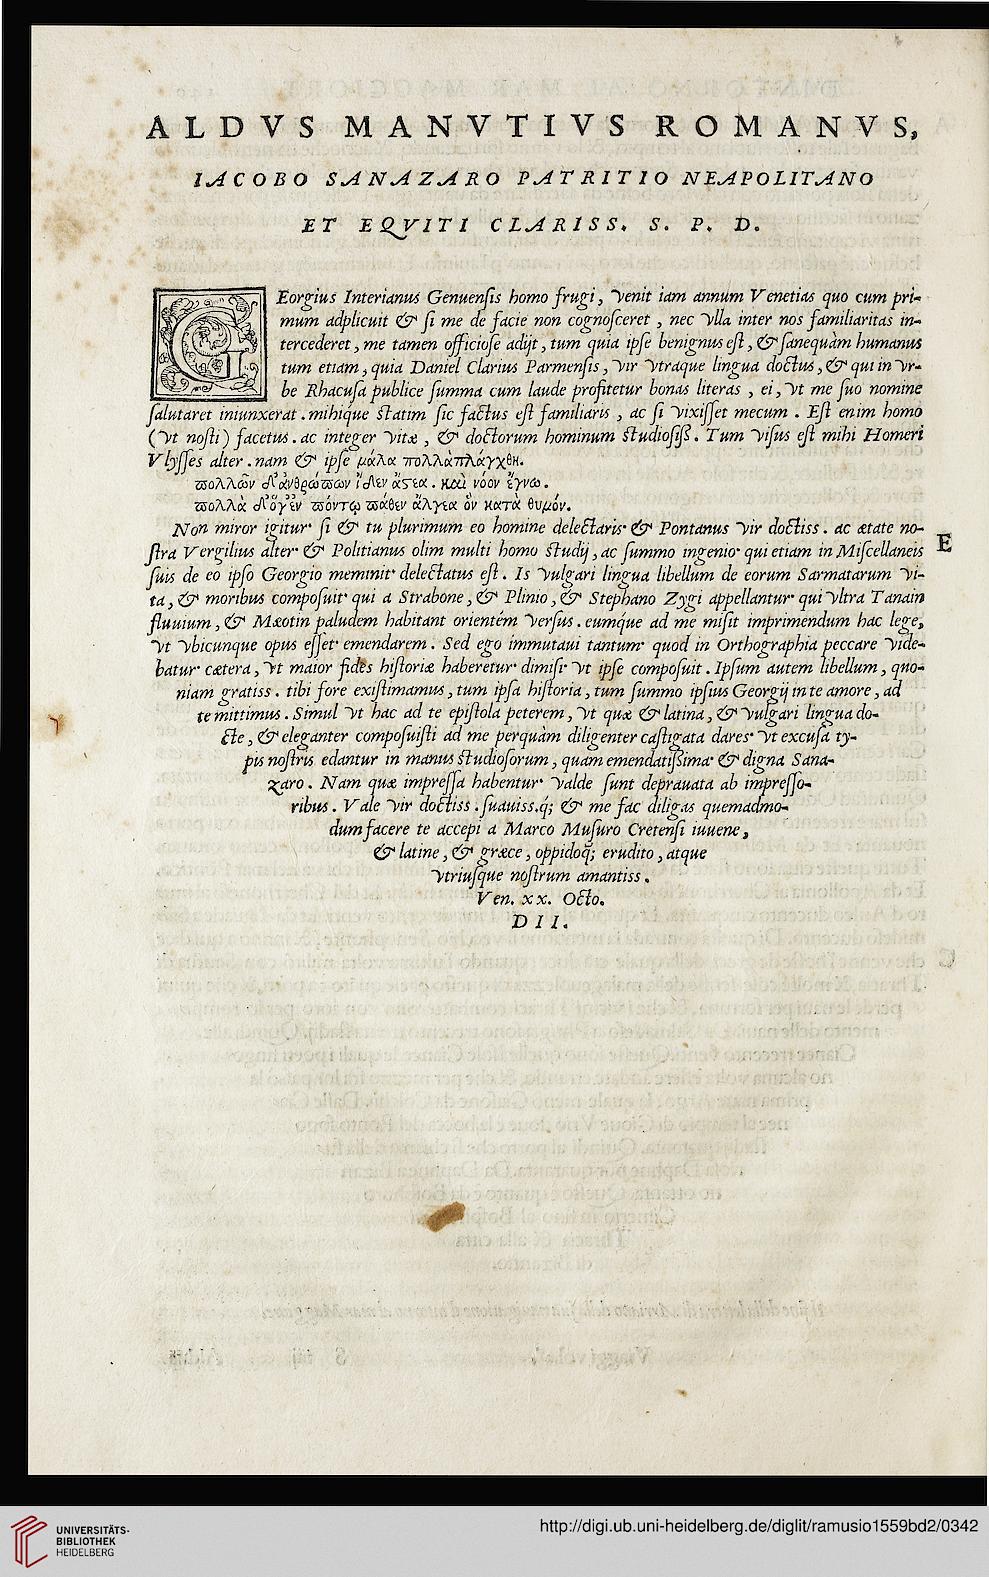 ALDVS MANVTIVS ROMANVS,
IACOBO SANAZARO PATRITIO NEAPOLITANO
ET EQVITI CLARISS. S. P. D.
GEorgius Interianus Genuensis homo frugi, venit iam annum Venetias quo cum pri-
mum adplicuit & si me de facie non cognosceret, nec vlla inter nos familiaritas in-
tercederet, me tamen officiose adijt, tum quia ipse benignus est, & sanequàm humanus
tum etiam, quia Daniel Clarius Parmensis, vir vtraque lingua doctus, & qui in vr-
be Rhacusa publice summa cum laude profitetur bonas literas, ei, vt me suo nomine
salutaret iniunxerat. mihique statim sic factus est familiaris, ac si vixisset mecum. Est enim homo
(vt nosti) facetus. ac integer vitæ, & doctorum hominum studiosiss. Tum visus est mihi Homeri
Vlysses alter. nam & ipse μάλα πολλὰ πλάγχθη.
πολλῶν δ' ἀνθρώπων ἴδεν ἄστεα. καὶ νόον ἔγνω.
πολλὰ δ' ὅγ' ἐν πόντῳ πάθεν ἄλγεα ὃν κατὰ θυμόν.
Non miror igitur si & tu plurimum eo homine delectaris & Pontanus vir doctiss. ac ætate no-
stra Vergilius alter & Politianus olim multi homo studij, ac summo ingenio qui etiam in Miscellaneis
E
suis de eo ipso Georgio meminit delectatus est. Is vulgari lingua libellum de eorum Sarmatarum vi-
ta, & moribus composuit qui a Strabone, & Plinio, & Stephano Zygi appellantur qui vltra Tanain
fluuium, & Mæotin paludem habitant orientém versus. eumque ad me misit imprimendum hac lege,
vt vbicunque opus esset emendarem. Sed ego immutaui tantum quod in Orthographia peccare vide-
batur cætera, vt maior fides historiæ haberetur dimisi vt ipse composuit. Ipsum autem libellum, quo-
niam gratiss. tibi fore existimamus, tum ipsa historia, tum summo ipsius Georgij in te amore, ad
te mittimus. Simul vt hac ad te epistola peterem, vt quæ & latina, & vulgari lingua do-
cte, & eleganter composuisti ad me perquàm diligenter castigata dares vt excusa ty-
pis nostris edantur in manus studiosorum, quam emendatissima & digna Sana-
zaro. Nam quæ impressa habentur valde sunt deprauata ab impresso-
ribus. Vale vir doctiss. suauiss.q; & me fac diligas quemadmo-
dum facere te accepi a Marco Musuro Cretensi iuuene,
& latine, & græce, oppidoq; erudito, atque
vtriusque nostrum amantiss.
Ven. xx. Octo.
DII.
UNIVERSITÄTS-
BIBLIOTHEK
HEIDELBERG
http://digi.ub.uni-heidelberg.de/diglit/ramusio1559bd2/0342